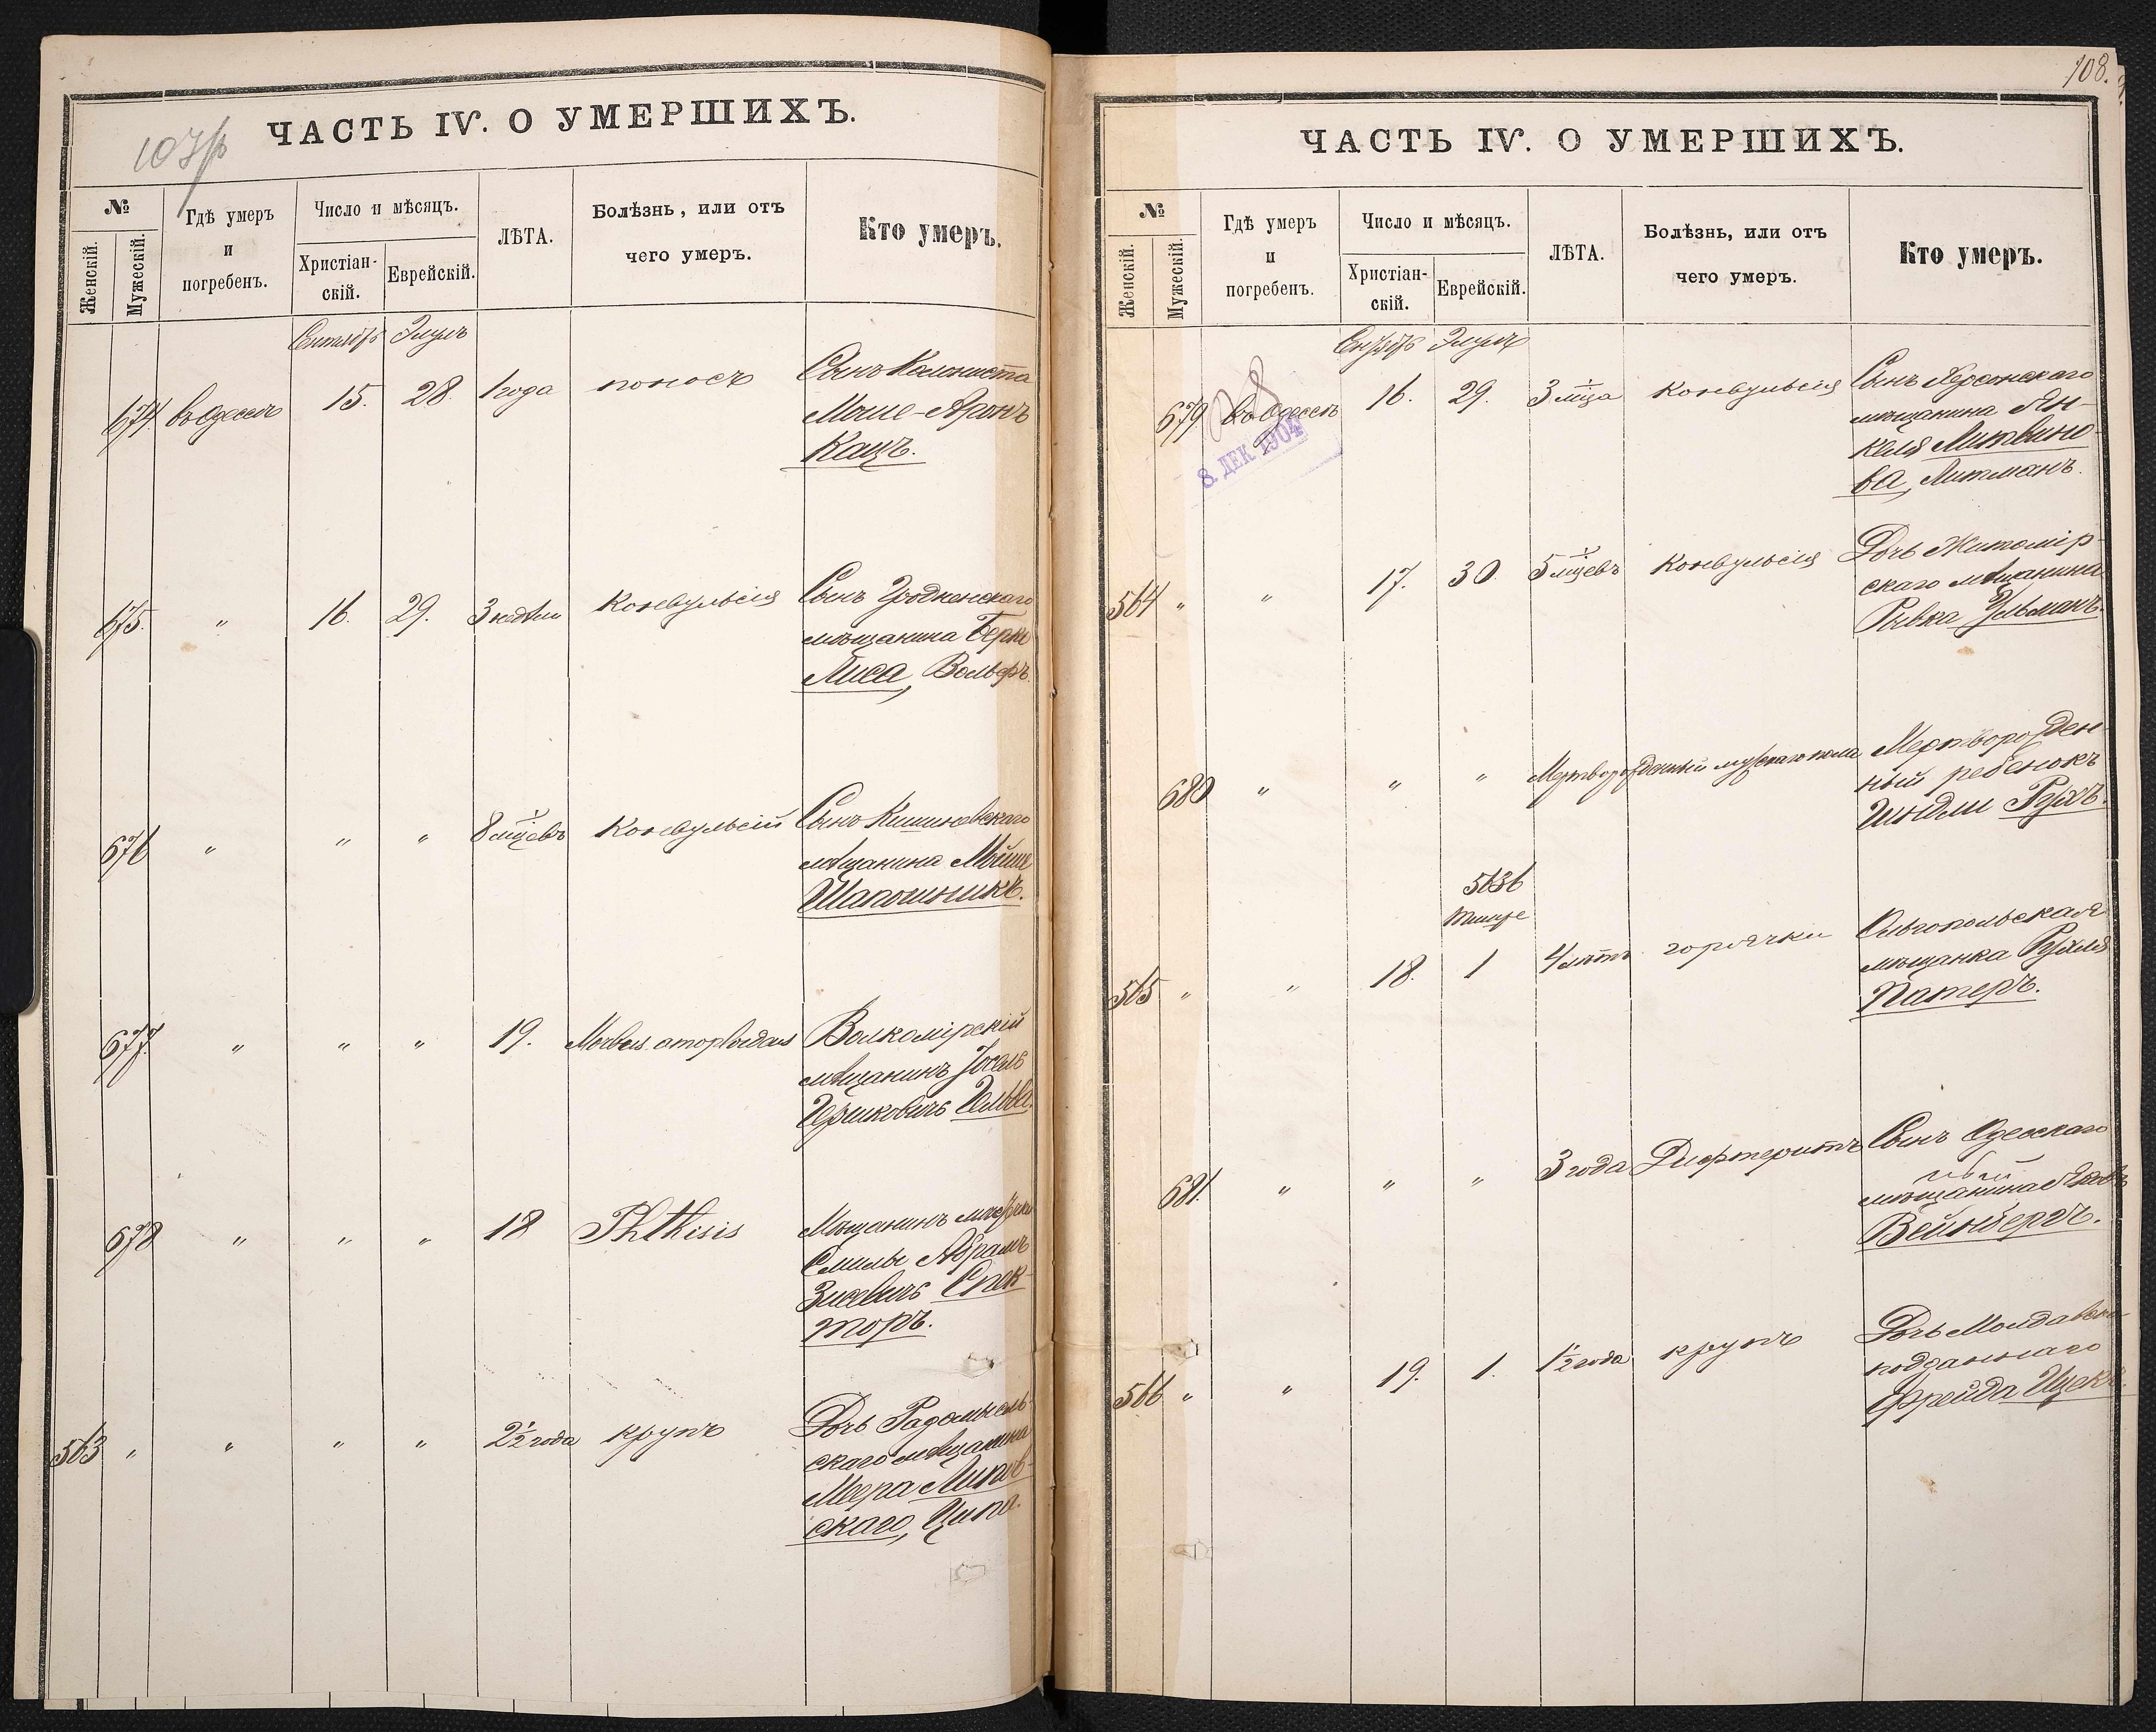 107/б
ЧАСТЬ IV. О УМЕРШИХЪ.
№
Женскій.
Мужескій.
Гдѣ умеръ
и
погребенъ.
Число и мѣсяцъ.
Христіан-
скій.
Еврейскій.
ЛѢТА.
Болѣзнь, или отъ
чего умеръ.
Кто умеръ.
Элулъ
674. въ Одессѣ 15. 28. 1 года поносъ Сынъ Колониста
Моше-Аронъ
Кацъ.
675. " 16. 29. 3 недѣли Конвульсія Сынъ Гродненскаго
мѣщанина Берко
Лиса, Вольфъ.
676 " " " 8 мцевъ Конвульсій Сынъ Кишиневскаго
мѣщанина
Шапошникъ.
677. " " " 19. Morbus Волкомірскій
мѣщанинъ Іосель
Ицковичъ
678 " " " 18 Phthisis Мѣщанинъ
Смилы Абрамъ
Зисевичъ Спек-
торъ.
563 " " " " 2½ года крупъ Дочь Радомысль-
скаго мѣщанина
Мера Липов-
скаго, Ципа.
108.
ЧАСТЬ IV. О УМЕРШИХЪ.
№
Женскій.
Мужескій.
Гдѣ умеръ
и
погребенъ.
Число и мѣсяцъ.
Христіан-
скій.
Еврейскій.
ЛѢТА.
Болѣзнь, или отъ
чего умеръ.
Кто умеръ.
Элулъ
679 въ Одессѣ 16. 29. 3 мца Конвульсія Сынъ Херсонскаго
мѣщанина Ян-
келя Литвино-
ва, Литманъ.
8. ДЕК 1904
564 " " 17. 30. 5 мцевъ Конвульсія Дочь Житомір-
скаго мѣщанина
Ривка Ульманъ.
680 " " " Мертворожденный мужскаго пола Мертворожден-
ный ребенокъ
Шндли
5636
Тишре
565 " " 18. 1 4 лѣтъ горячки Ольгопольская
мѣщанка Рухля
Патеръ.
681. " " " 3 года Дифтеритъ Сынъ Одесскаго
мѣщанина
Вейнбергъ.
566 " " 19. 1. 1½ года крупъ Дочь Молдавско-
подданнаго
Фрейда